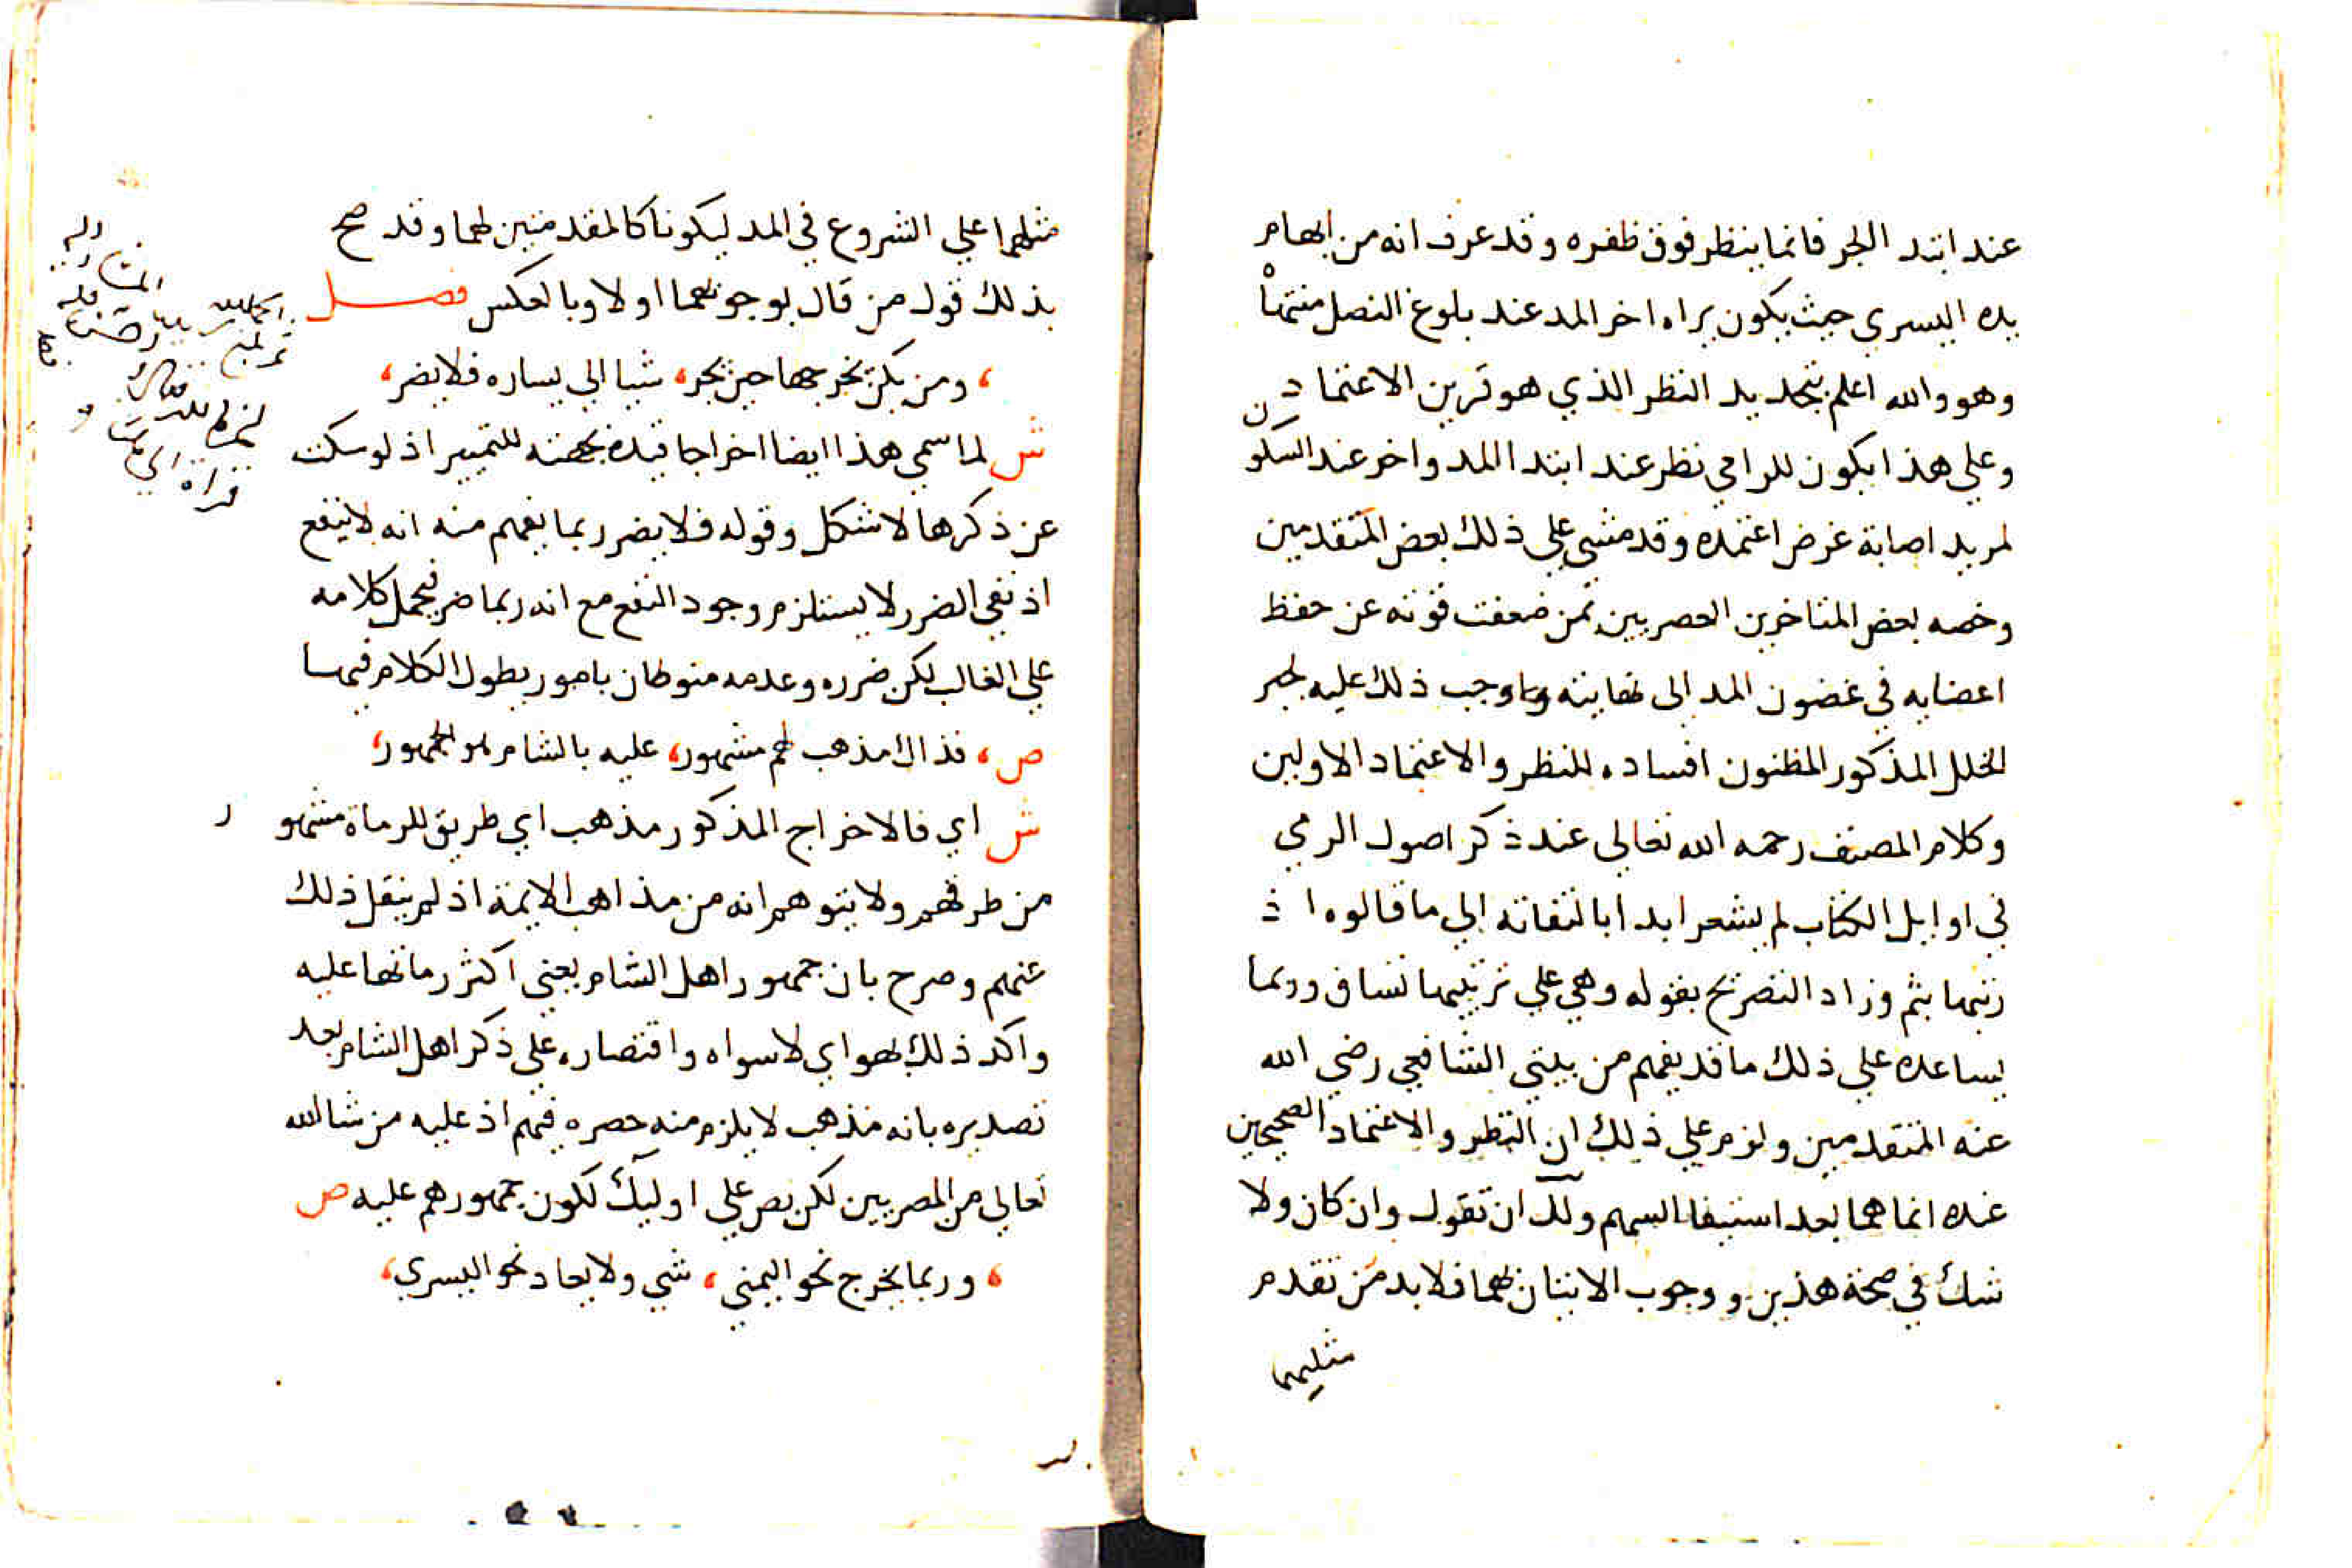 عند ابتد الجر فانما ينظر فوق ظفره وقد عرف انه من ابهام
يده اليسري حيث يكون يراه اخر المد عند بلوغ النصل منتهاْ
وهو والله اعلم بتحديد النظر الذي هو قرين الاعتماد
وعلي هذا يكون للرامي نظر عند ابتدا المد واخر عند السكون
لمريد اصابة غرض اعتمده وقد مشي علي ذلك بعض المتقدمين
وخصه بعض المتاخرين العصريين بمن ضعفت قوته عن حفظ
اعضايه في غضون المد الى نهايته واوجب ذلك عليه لجبر
الخلل المذكور المظنون افساده للنظر والاعتماد الاولين
وكلام المصنف رحمه الله تعالي عند ذكر اصول الرمي
في اوايل الكتاب لم يشعر ابدا بالتفاته الي ما قالوه اذ
رتبها بثم وزاد التصريح بقوله وهي علي ترتيبها تساق وربما
يساعده علي ذلك ما قد يفهم من بيتي الشافعي رضي الله
عنه المتقدمين ولزم علي ذلك ان النظر والاعتماد الصحيحين
عنده انما هما بعد استيفا السهم ولك ان تقول وان كان ولا
شك في صحة هذين ووجوب الاتيان بهما فلا بد من تقدم
مثليهما
مثلهما علي الشروع في المد ليكونا كالمقدمتين لهما وقد صح
بذلك قول من قال بوجوبهما اولا وبالعكس فصل
، ومن يكن يخرجها حين يجر، شيا الي يساره فلا يضر،
ش لما سمي هذا ايضا اخراجا قيده بجهته للتمييز اذ لو سكت
عن ذكرها لاشكل وقوله فلا يضر ربما يفهم منه انه لا ينفع
اذ نفي الضرر لا يستلزم وجود النفع مع انه ربما ضر فيحمل كلامه
علي الغالب لكن ضرره وعدمه منوطان بامور يطول الكلام فيها
ص، فذاك مذهب لهم مشهور، عليه بالشام هو الجمهور،
ش اي فالاخراج المذكور مذهب اي طريق للرماة مشهور
من طرقهم ولا يتوهم انه من مذاهب الايمة اذ لم ينقل ذلك
عنهم وصرح بان جمهور اهل الشام يعني اكثر رماتها عليه
واكد ذلك بهو اي لا سواه واقتصاره علي ذكر اهل الشام بعد
تصديره بانه مذهب لا يلزم منه حصره فيهم اذ عليه من شا الله
تعالي من المصريين لكن نص علي اوليك لكون جمهورهم عليه ص
، وربما يخرج نحو اليمني، شي ولا يعاد نحو اليسري،